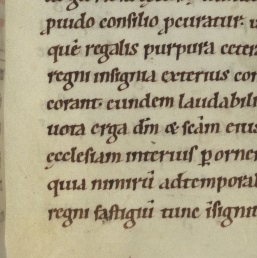 puido consilio ꝓcuratur.
quē regalis purpura cetera
regni insignia exterius cor
corant. eundem laudabili
uota erga dm̄ & scām eius
ecclesiam interius ꝑorner
quia nimirū ad temporal
regni fastigiū tunc īsignit